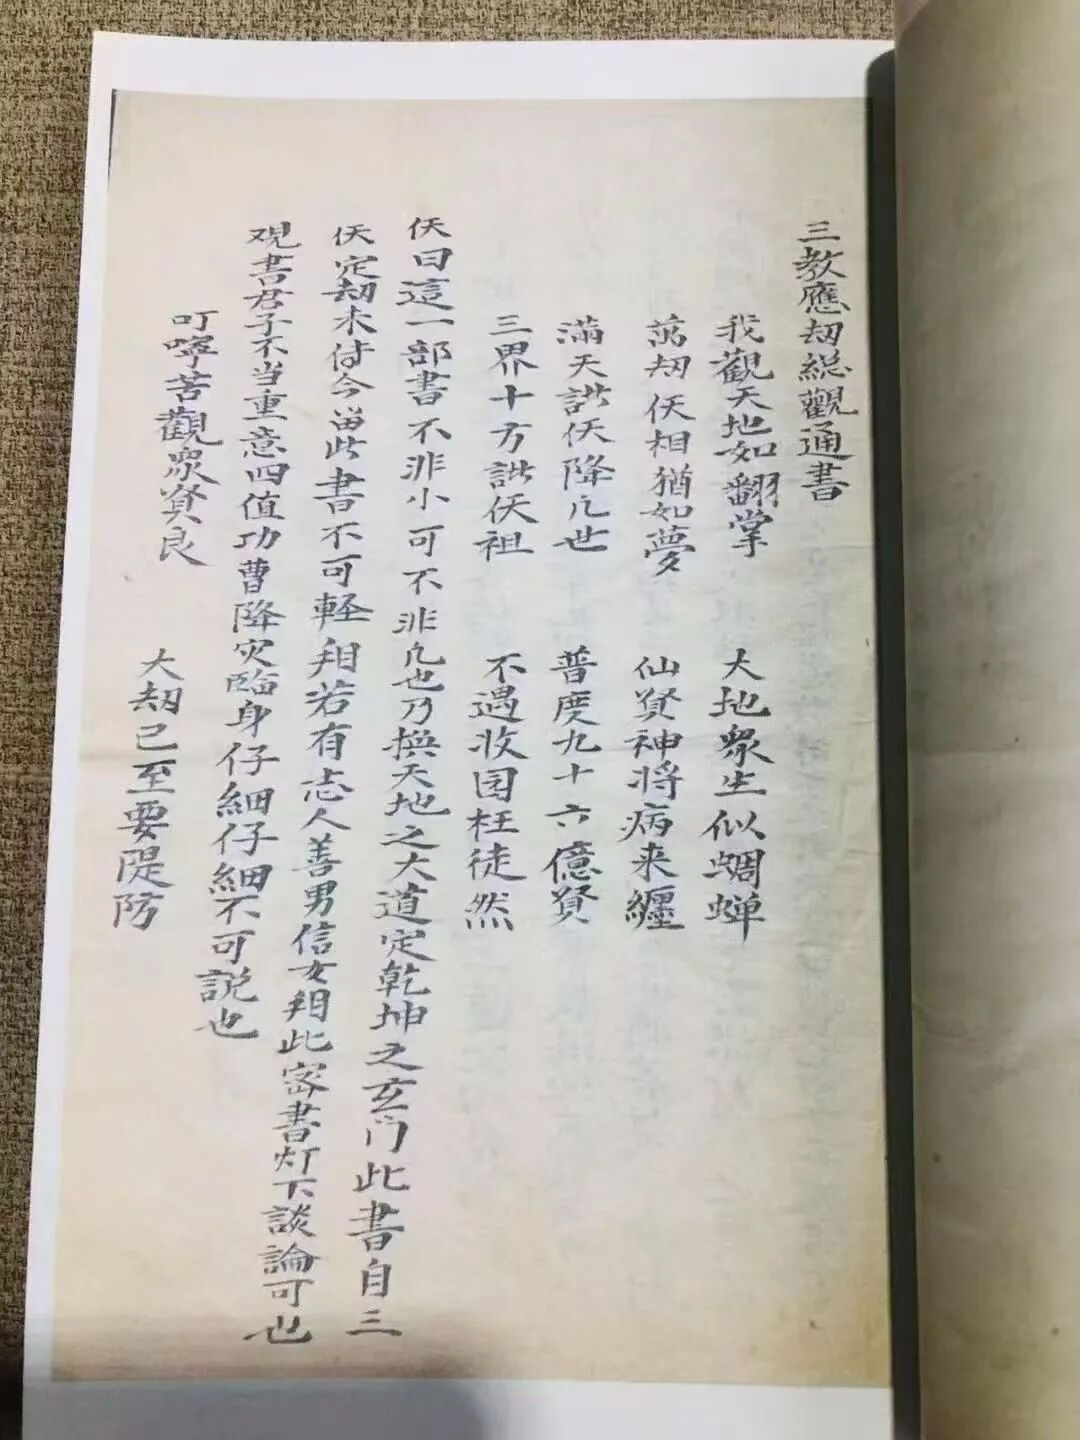 三教應刼総觀通書
我觀天地如翻掌　大地衆生似蜩蝉
萬刼仸相猶如夢　仙贤神将病来纒
滿天諸仸降凢世　普度九十六億贤
三界十方諸仸祖　不遇收园枉徒然
仸曰這一部書不非小可不非凢也乃撰天地之大道定乾坤之玄门此書自三
仸定刼未侍今畄此書不可軽翔若有志人善男信女翔此宻書灯下談論可也
观書君子不当重意四值功曹降灾臨身仔細仔細不可説也
叮嚀苦觀衆贤良　大刼已至要隄防